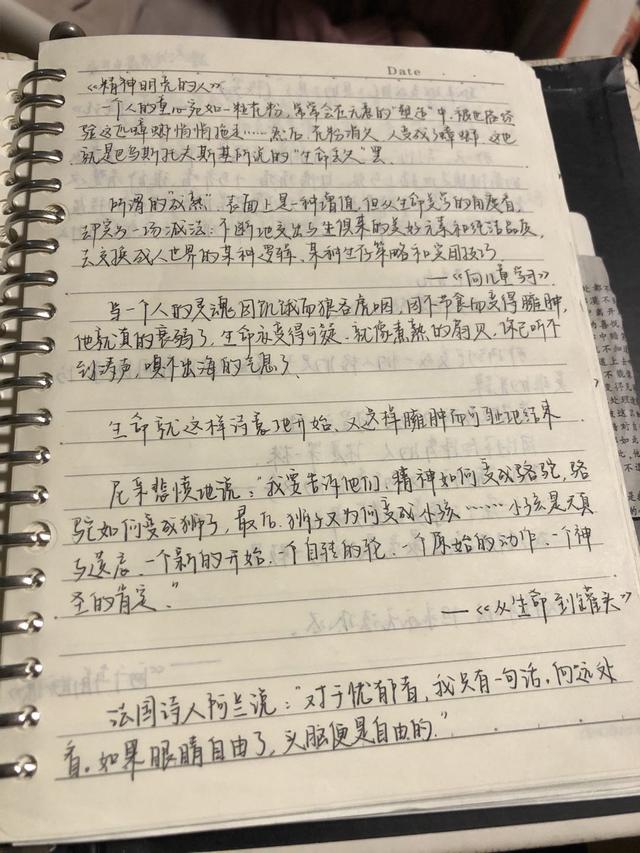 Date
《精神明亮的人》
一个人的童心宛如一粒花粉，常常会在无意的"塑造"中，被世俗经
验这匹蟑螂悄悄拖走……然后，花粉消失，人变成了蟑螂。这也
就是巴乌斯托夫斯基所说的"生命丢失"罢。
所谓的"成熟"，表面上是一种增值，但从生命美学的角度看，
却实为一场减法：不断地交出与生俱来的美好元素和纯洁品质，
去交换成人世界的某种逻辑、某种生存策略和实用技巧。
——《向儿童学习》
当一个人的灵魂因饥饿而狼吞虎咽，因不节食而变得臃肿，
他就真的衰弱了，生命亦变得可疑，就像煮熟的扇贝，你已听不
到涛声，嗅不出海的气息了。
生命就这样诗意地开始，又这样臃肿而可耻地结束
尼采悲愤地说："我要告诉他们，精神如何变成骆驼，骆
驼如何变成狮子，最后，狮子又为何变成小孩……小孩是天真
与遗忘，一个新的开始，一个自转的轮，一个原始的动作，一个神
圣的肯定。"
——《从生命到罐头》
法国诗人阿兰说："对于忧郁者，我只有一句话，向远处
看。如果眼睛自由了，头脑便是自由的."